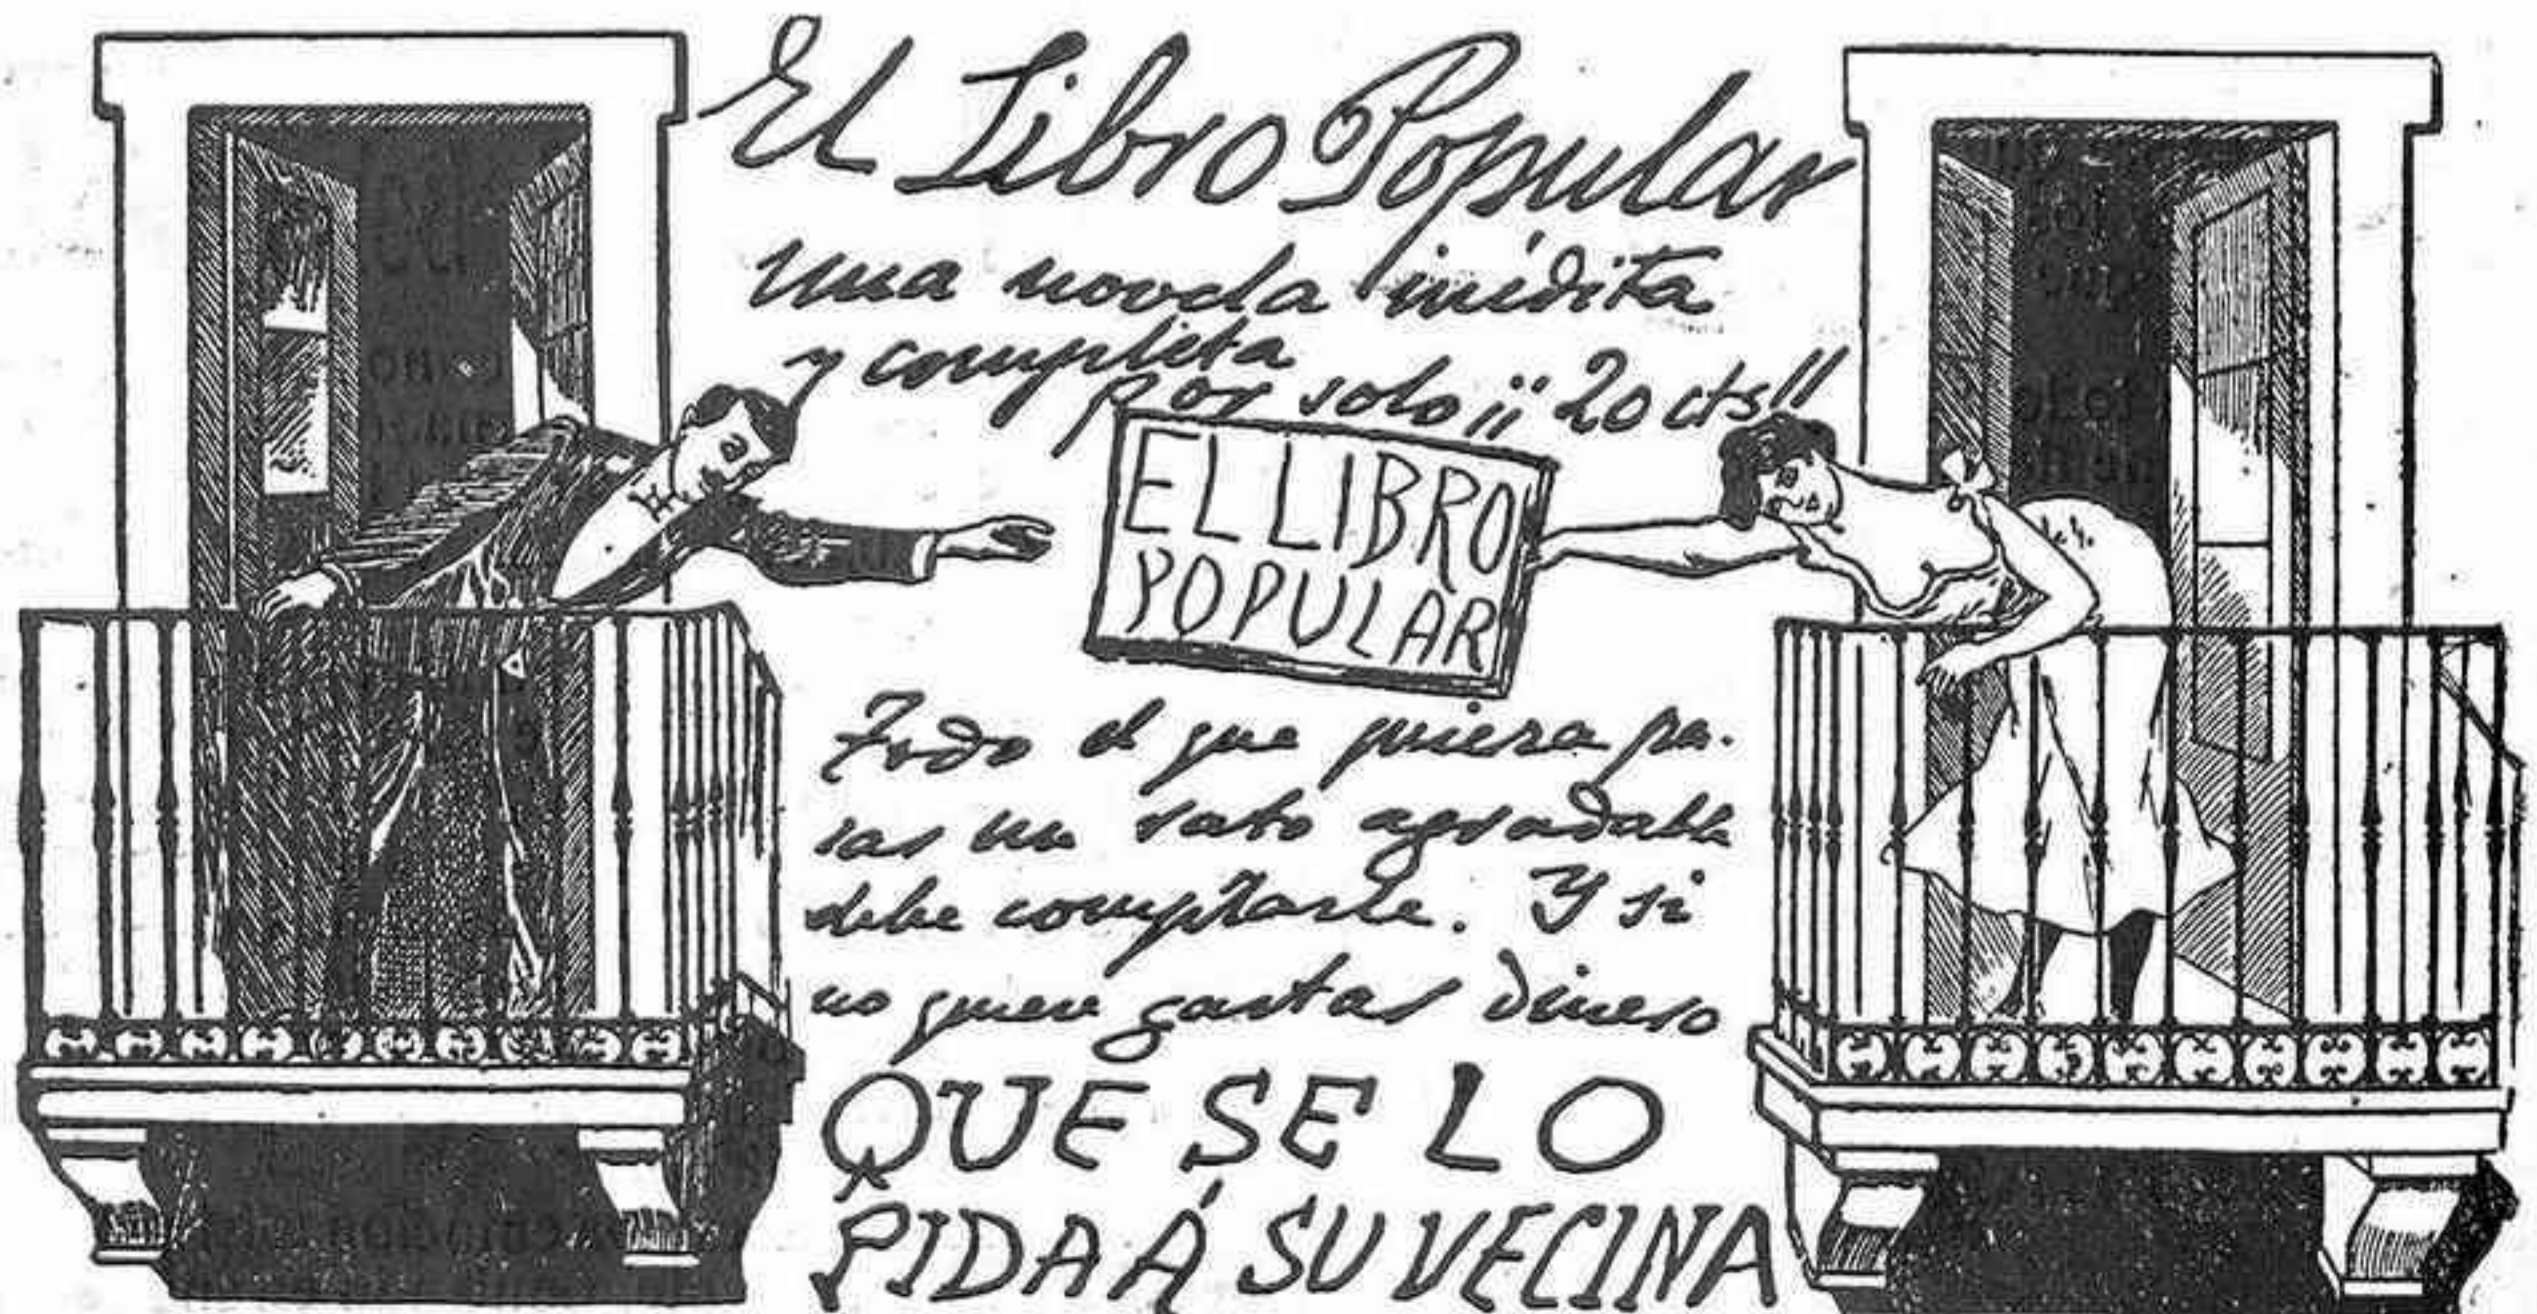 El Libro Popular
Una novela inédita
y completa
por solo ¡¡20 cts!!
EL LIBRO
POPULAR
Todo el que quiera pa-
sar un rato agradable
debe comprarle. Y si
no quiere gastar dinero
QUE SE LO
PIDA Á SU VECINA